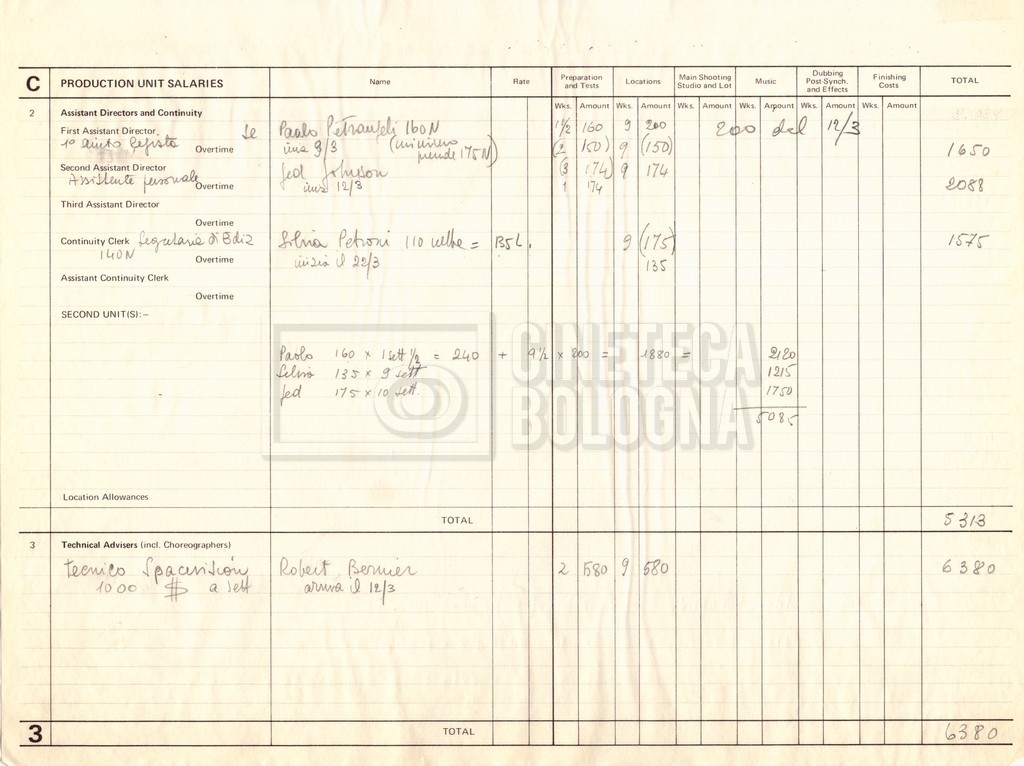 C PRODUCTION UNIT SALARIES Name Rate Preparation and Tests Locations Main Shooting Studio and Lot Music Dubbing Post Synch. and Effects Finishing Costs TOTAL
Wks. Amount Wks. Amount Wks. Amount Wks. Amount Wks. Amount Wks. Amount
2 Assistant Directors and Continuity
First Assistant Director Paolo Pietrangeli 160 N 1 1/2 160 9 200 200 dal 12/3
1° aiuto regista Overtime 9/3 (minimo prende 175 N) (2 150) 9 (150) 1650
Second Assistant Director Jed Johnson (3 174) 9 174
Assistente personale Overtime 12/3 1 174 2088
Third Assistant Director
Overtime
Continuity Clerk Segretaria di Ediz Silvia Petroni 110 nette = B5L. 9 (175) 1575
140 N Overtime inizia il 22/3 135
Assistant Continuity Clerk
Overtime
SECOND UNIT(S):-
Paolo 160 x 1 sett 1/2 = 240 + 9 1/2 x 200 = 1880 = 2120
Silvia 135 x 9 sett 1215
Jed 175 x 10 sett. 1750
5085
CINETECA
BOLOGNA
Location Allowances
TOTAL 5313
3 Technical Advisers (incl. Choreographers)
Tecnico Spacevision Robert Bernier 2 580 9 580 6380
1000 $ a sett arriva il 12/3
3 TOTAL 6380